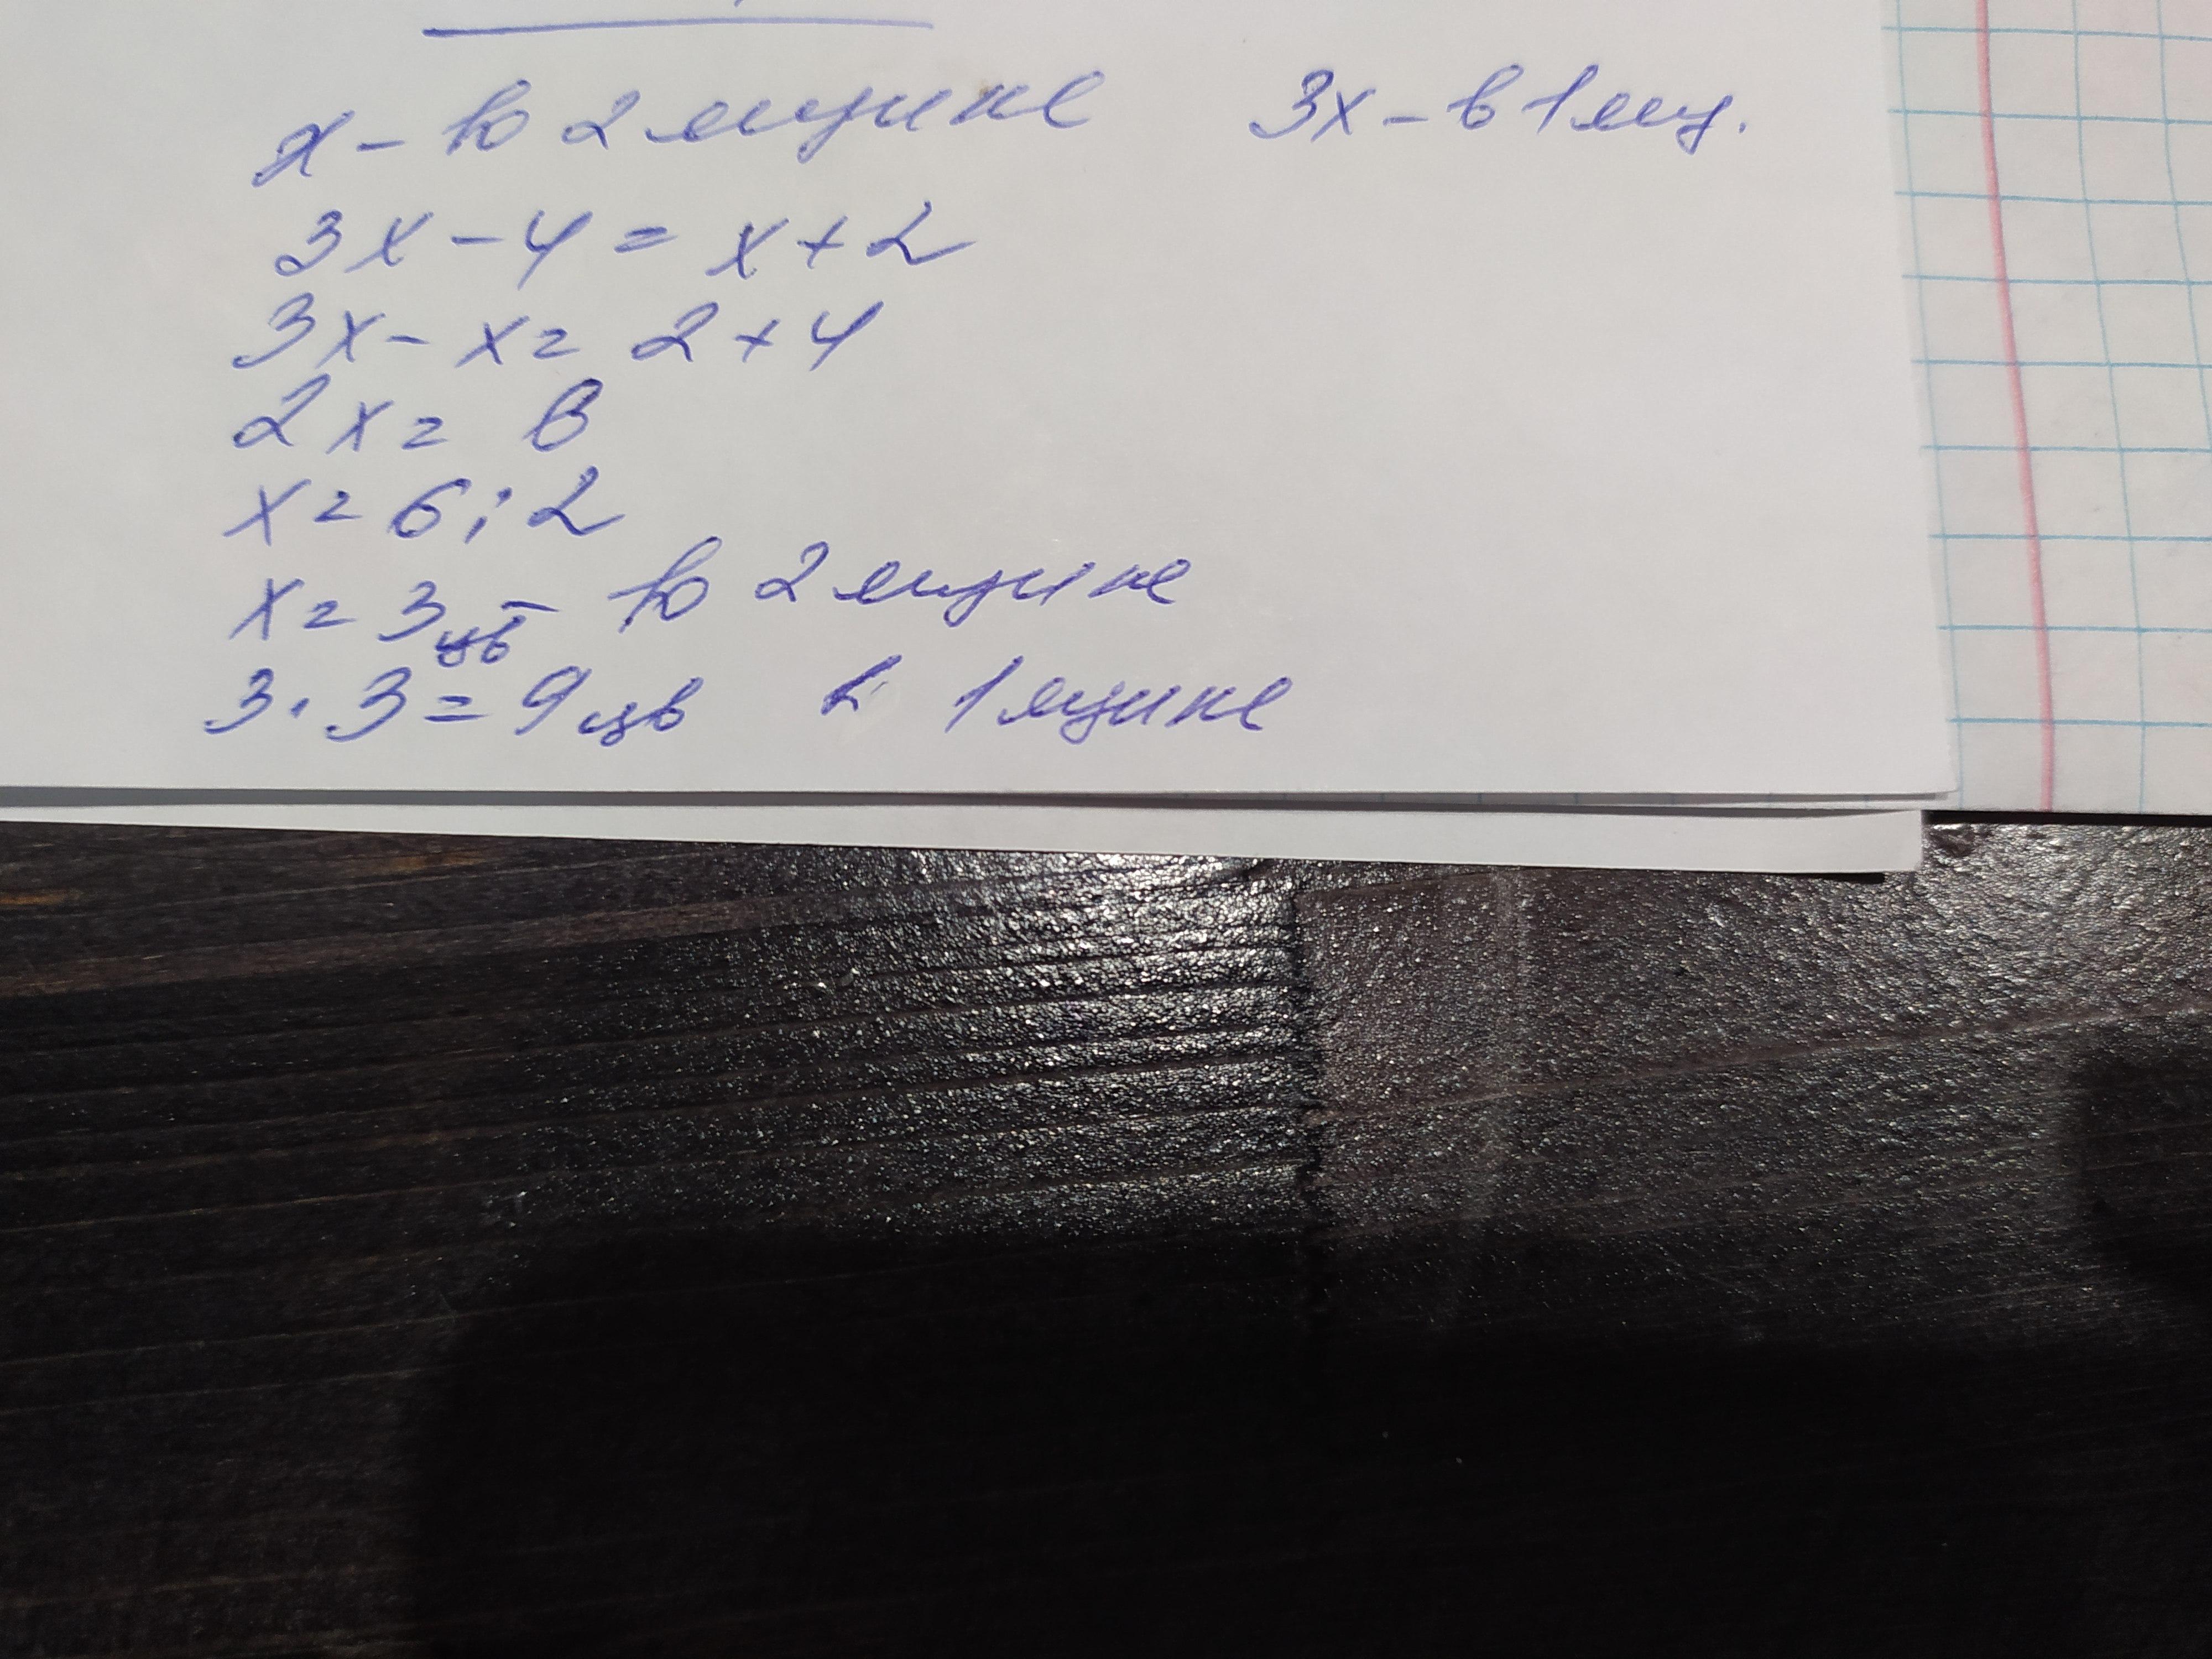 x - во 2 ящике 3x - в 1 ящ.
3x - 4 = x + 2
3x - x = 2 + 4
2x = 6
x = 6 : 2
x = 3 цв - во 2 ящике
3 · 3 = 9 цв в 1 ящике